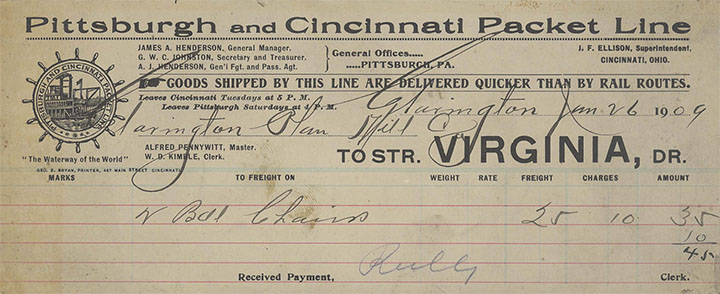 Pittsburgh and Cincinnati Packet Line
JAMES A. HENDERSON, General Manager.
G. W. C. JOHNSTON, Secretary and Treasurer.
A. J. HENDERSON, Gen'l Fgt. and Pass. Agt.
General Offices.....
.....PITTSBURGH, PA.
J. F. ELLISON, Superintendent,
CINCINNATI, OHIO.
GOODS SHIPPED BY THIS LINE ARE DELIVERED QUICKER THAN BY RAIL ROUTES.
Leaves Cincinnati Tuesdays at 5 P. M.
Leaves Pittsburgh Saturdays at P. M.
PITTSBURGH AND CINCINNATI PACKET LINE
Clarington Jan 26 1909
Clarington Plan Mill Co
ALFRED PENNYWITT, Master.
W. D. KIMBLE, Clerk.
"The Waterway of the World"
GEO. E. BRYAN, PRINTER, 447 MAIN STREET CINCINNATI
TO STR. VIRGINIA, DR.
MARKS TO FREIGHT ON WEIGHT RATE FREIGHT CHARGES AMOUNT
Bdl Chairs 25 10 35
10
45
Received Payment, Clerk.